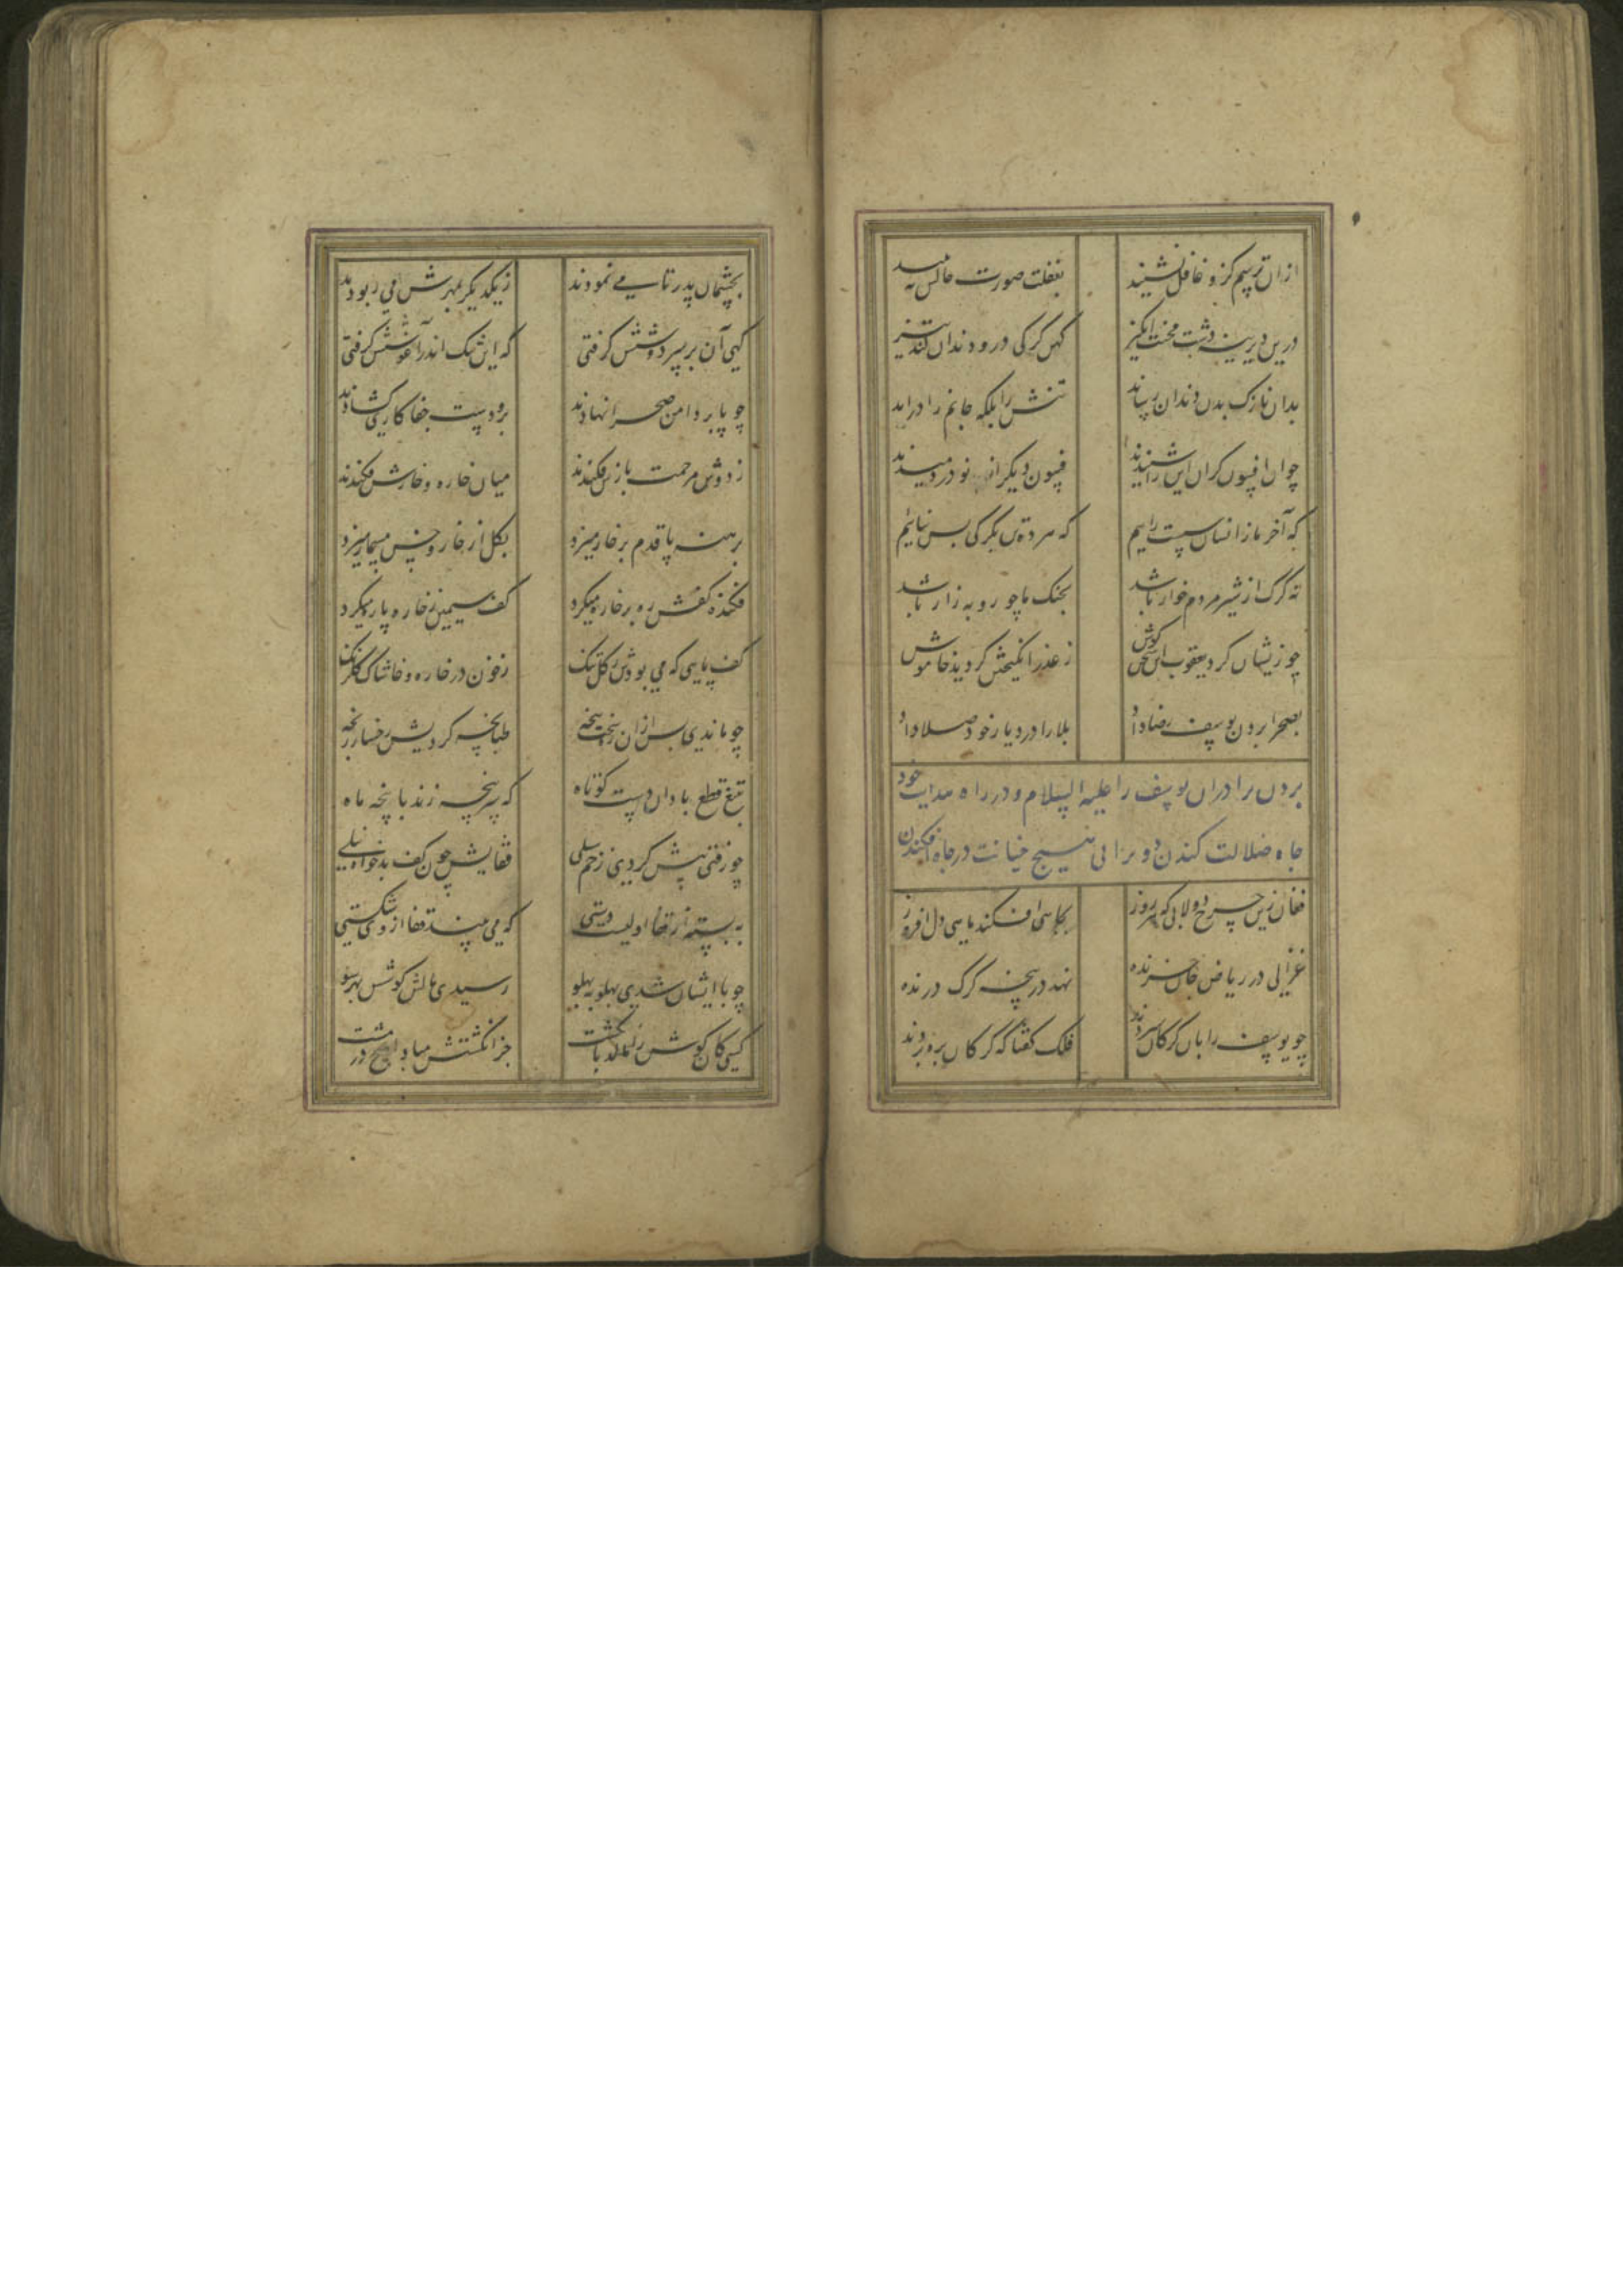 ازان ترسم کزو غافل نشینید بغفلت صورت حالش نبیند
درین دیرینه دشت محنت انگیز کهن گرگی درو دندان کند تیز
بدان نازک بدن دندان رساند تنش را بلکه جانم را دراند
چو ان افسون گران این را شنیدند فسون دیگر از نو دردمیدند
که آخر ما نه انسان سست رایم که هر ده تن بگرگی بس نیائیم
نه گرگ ار شیر مردم خوار باشد بجنگ ما چو روبه زار باشد
چو زیشان کرد یعقوب این سخن گوش ز عذر انگیختن گردید خاموش
بصحرا بردن یوسف رضا داد بلا را در دیار خود صلا داد
بردن برادران یوسف را علیه السلام و در راه هدایت خود
چاه ضلالت کندن و ویرا بی هیچ خیانت در چاه افکندن
فغان زین چرخ دولابی که هر روز بچاهی افکند ماهی دل افروز
غزالی در ریاض جان چرنده نهد در پنجه گرگ درنده
چو یوسف را بان گرگان سپردند فلک گفتا که گرگان بره بردند
بچشمان پدر تا می نمودند ز یکدیگر بمهرش می ربودند
گهی آن بر سر دوشش گرفتی گه این تنگ اندر آغوشش گرفتی
چو پا بر دامن صحرا نهادند برو دست جفا کاری گشادند
ز دوش مرحمت بازش فکندند میان خاره و خارش فکندند
برهنه پا قدم بر خار میزد بگل از خار و خس مسمار میزد
فکنده کفش ره بر خاره میکرد کف سیمین ز خاره پاره میکرد
کف پایی که می بودش ز گل تنگ ز خون در خاره و خاشاک گلرنگ
چو ماندی پس ازان ده سخت پنجه طپانچه کردیش رخسار رنجه
بتیغ قطع بادا دست کوتاه که سر پنجه زند با پنجه ماه
چو رفتی پیش کردی زخم سیلی قفایش چون کف بدخواه نیلی
به بسته از قفا اولیست دستی که می بیند قفا از وی شکستی
چو با ایشان شدی پهلو به پهلو رسیدی مالش گوشش بهر سو
کسی کان گوش را مالد بانگشت جز انگشتش مبادا هیچ در مشت